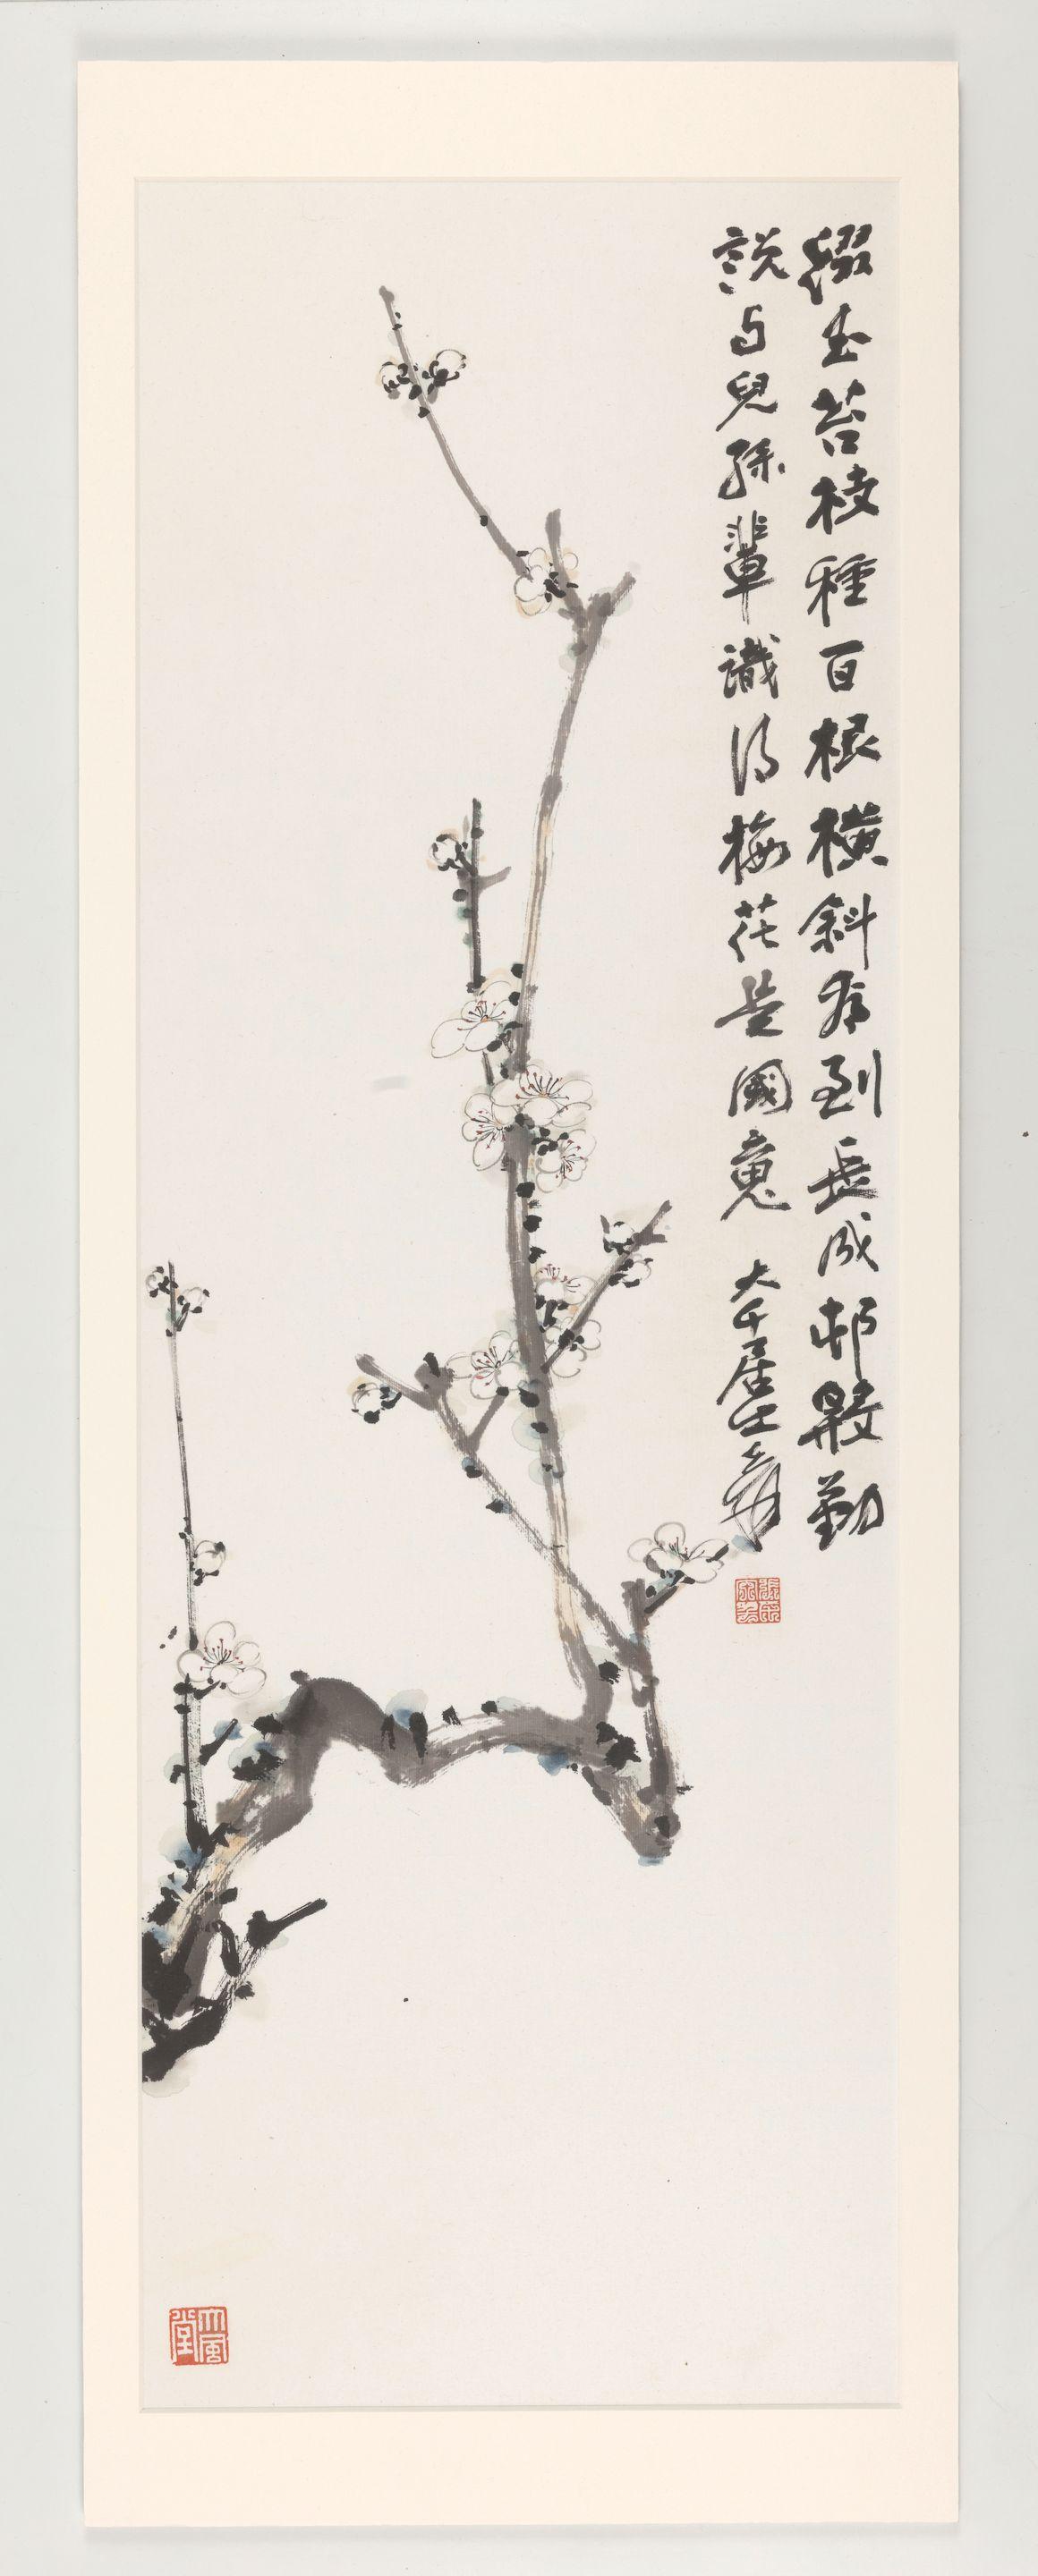 綴玉苔枝種百根橫斜看到長成邨殷勤
說与兒孫輩識得梅花是國魂
大千居士爰
大風堂